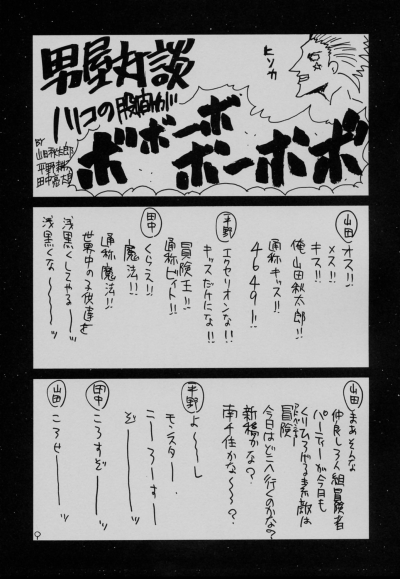 男屋対談
ハリコの股間が
ボボーボ
ボーボボ
ヒソカ
BY
山田秋太郎
平野耕太
田中
山田
オス!!
メス!!
キス!!
俺山田秋太郎!!
通称キッス!!
4649!!
平野
エクセリオンな!!
キッスだけにな!!
冒険王!!
通称ビィト!!
田中
くらえ!!
魔法!!
通称魔法!!
世界中の子供達を
浅黒くしてやる〜〜ッ
浅黒くな〜〜〜ッ
山田
まあそんな
仲良し3人組冒険者
パーティーが今日も
くりひろげる素敵な
冒険
今日はどこへ行くのかな?
新橋かな?
南千住かな〜〜?
平野
よ〜〜し
モンスター
こーろーすー
ぞーーッ
田中
ころすぞーーーッ
山田
ころせーーーーッ